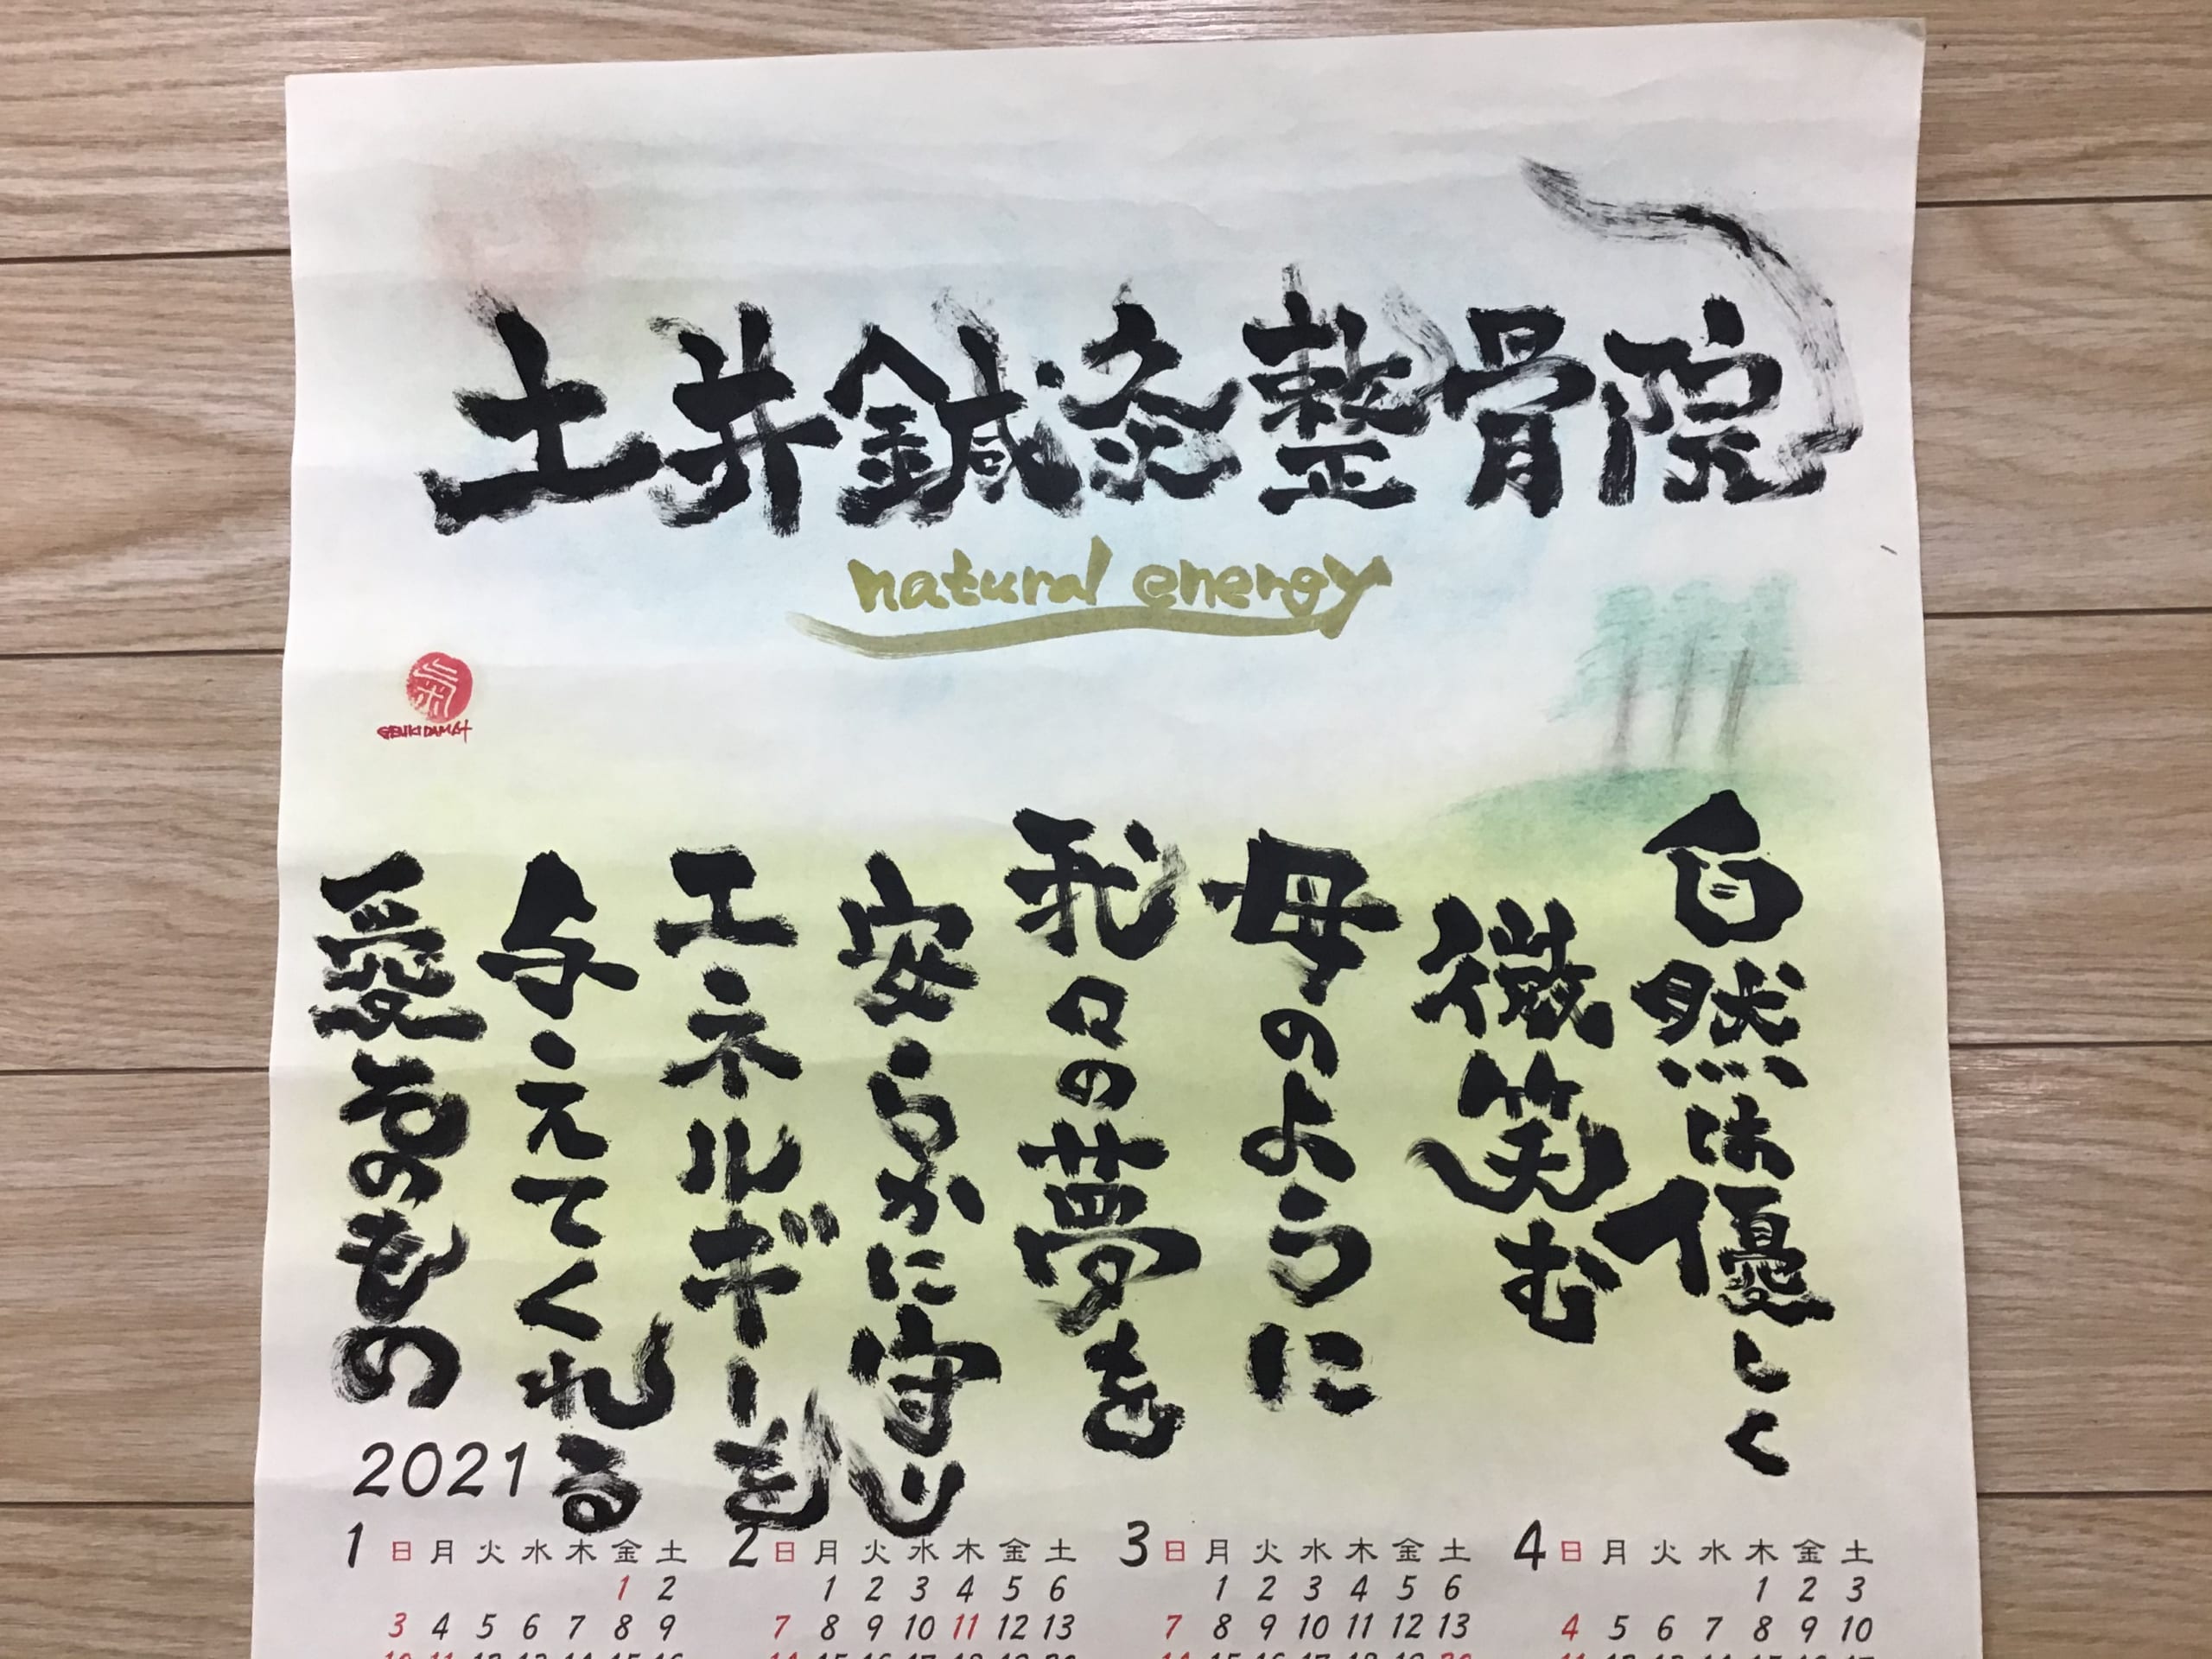 土井鍼灸整骨院
natural energy
氣
GENKIDAMA
自然は優しく
微笑む
母のように
我々の夢を
安らかに守り
エネルギーを
与えてくれる
愛そのもの
2021
1 日 月 火 水 木 金 土
1 2
3 4 5 6 7 8 9
10 11 12 13 14 15 16
2 日 月 火 水 木 金 土
1 2 3 4 5 6
7 8 9 10 11 12 13
14 15 16 17 18 19 20
3 日 月 火 水 木 金 土
1 2 3 4 5 6
7 8 9 10 11 12 13
14 15 16 17 18 19 20
4 日 月 火 水 木 金 土
1 2 3
4 5 6 7 8 9 10
11 12 13 14 15 16 17